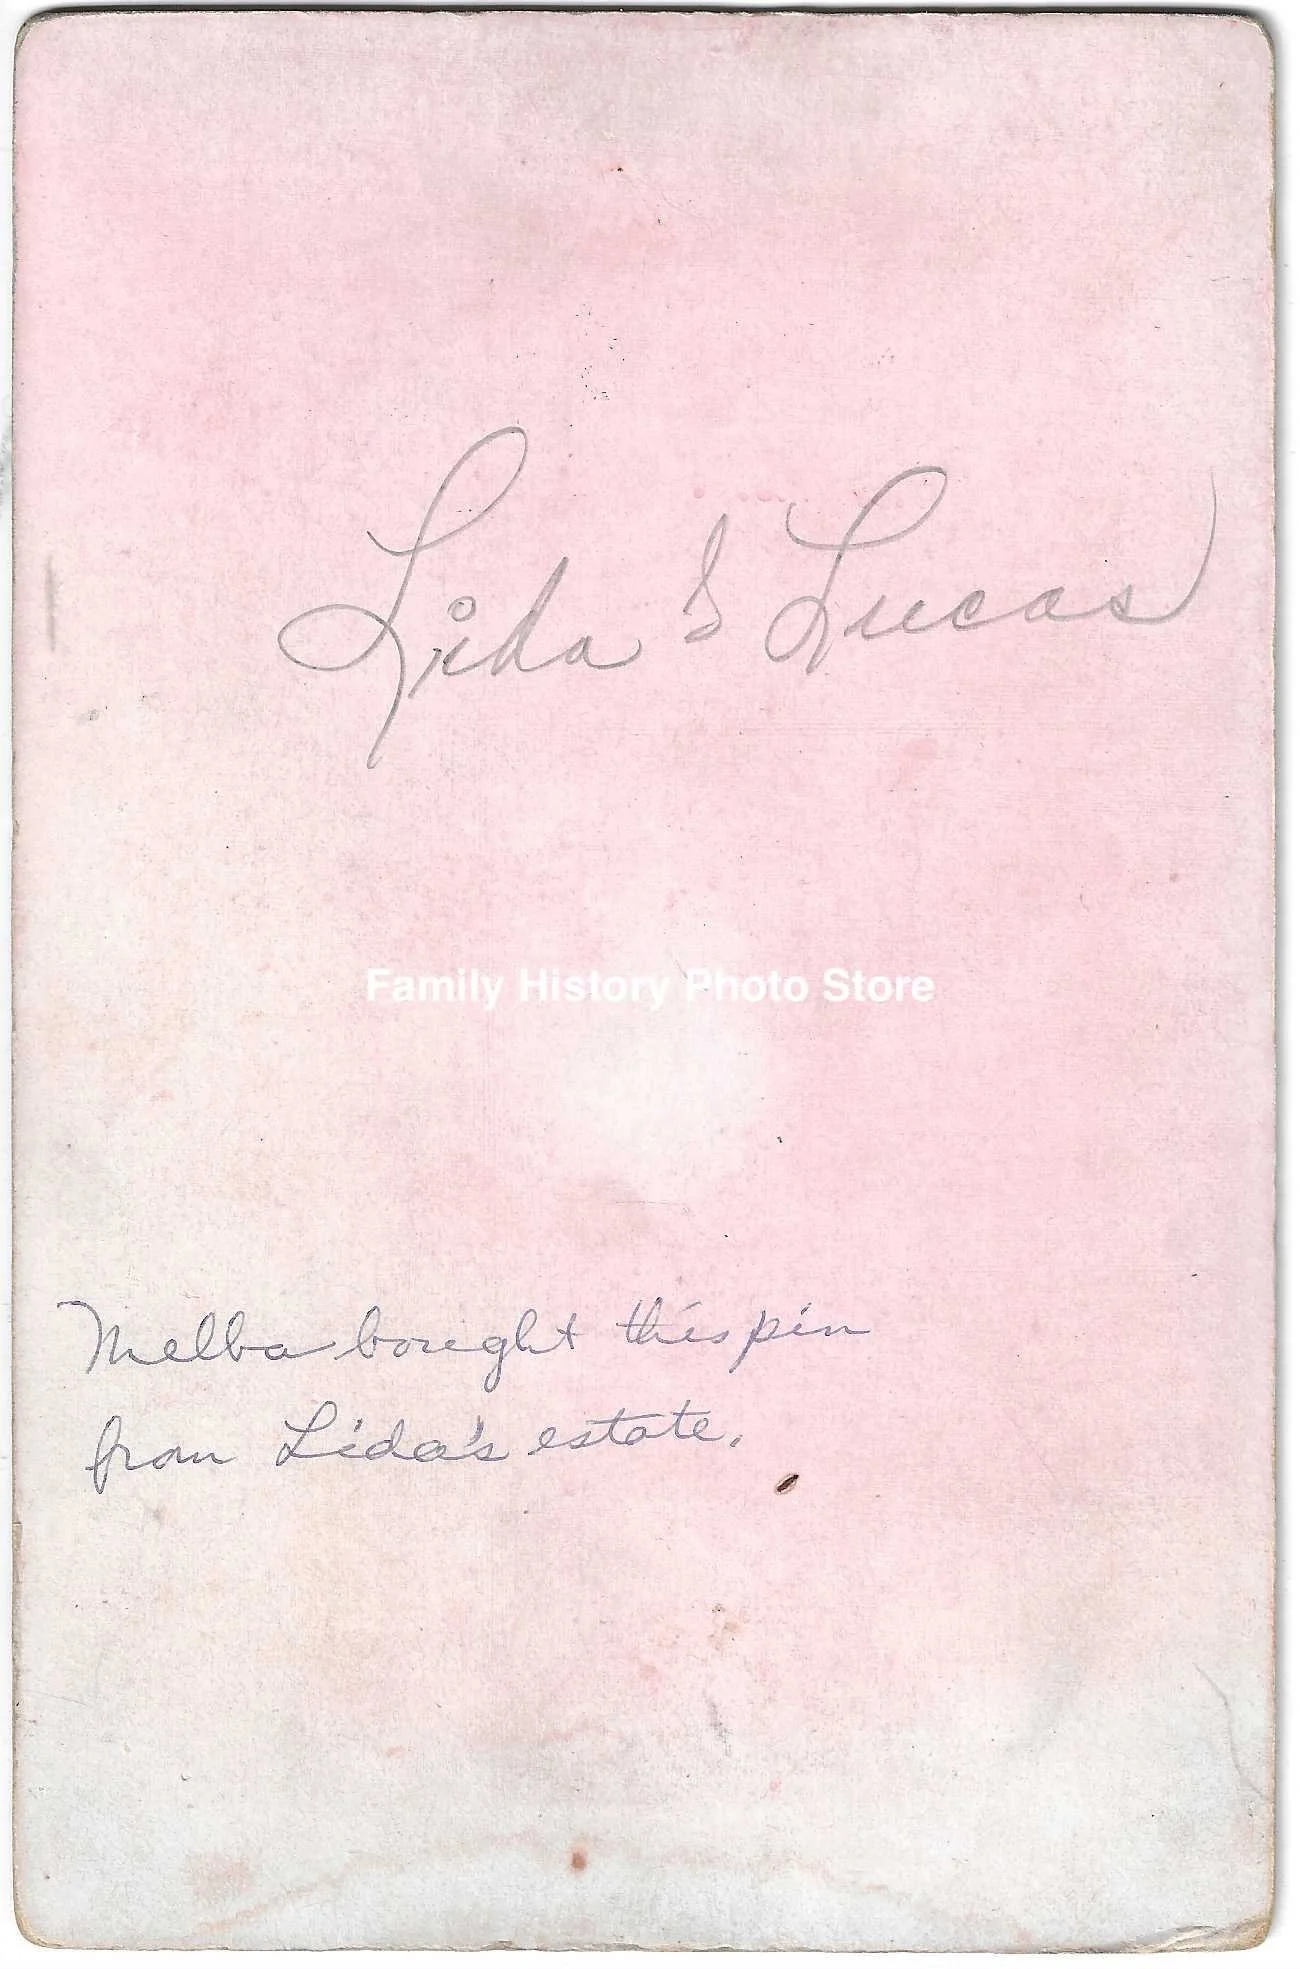 Lida & Lucas
Family History Photo Store
Melba bought this pin
from Lida's estate.